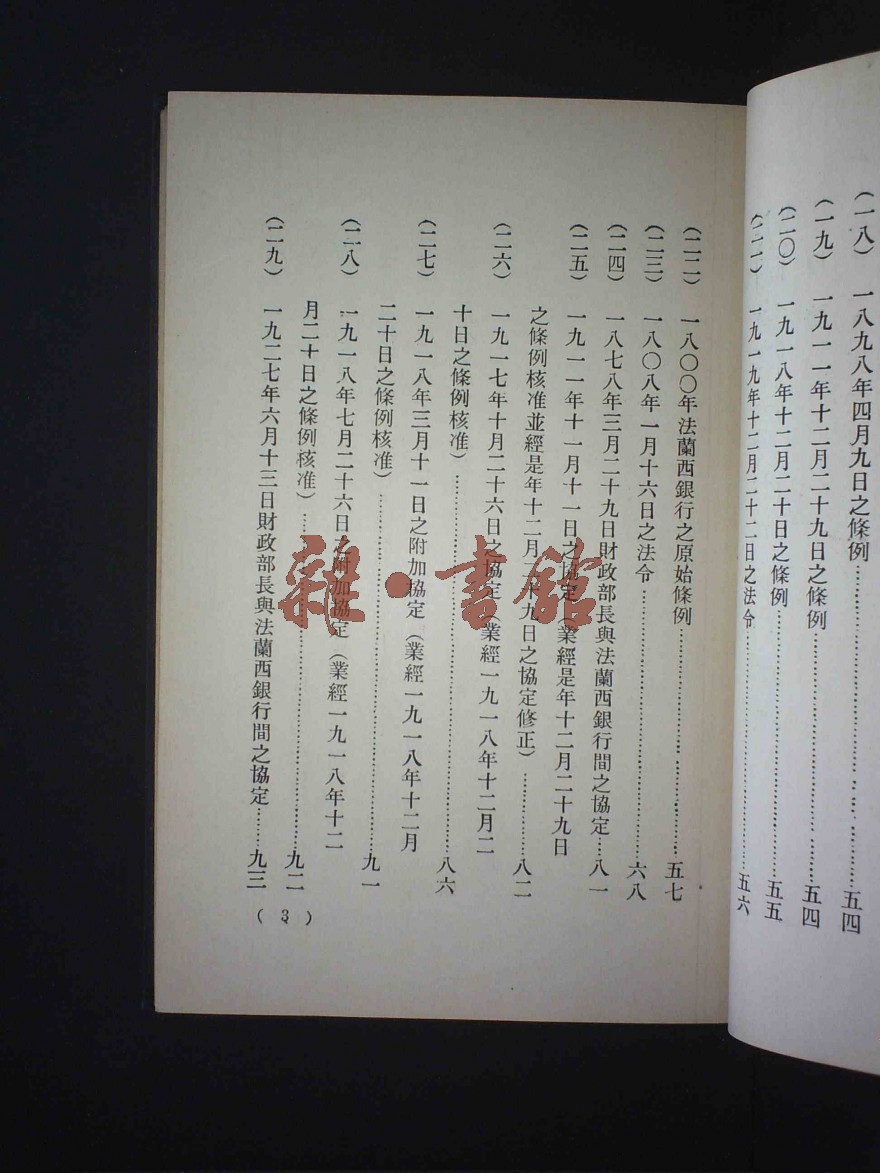 (一八) 一八九八年四月九日之條例……五四
(一九) 一九一一年十二月二十九日之條例……五四
(二〇) 一九一八年十二月二十日之條例……五五
(二一) 一九一九年十二月二十二日之法令……五六
(二二) 一八〇〇年法蘭西銀行之原始條例……五七
(二三) 一八〇八年一月十六日之法令……六八
(二四) 一八七八年三月二十九日財政部長與法蘭西銀行間之協定……八一
(二五) 一九一一年十一月十一日之協定（業經是年十二月二十九日
之條例核准並經是年十二月二十九日之協定修正）……八二
(二六) 一九一七年十月二十六日之協定（業經一九一八年十二月二
十日之條例核准）……八六
(二七) 一九一八年三月十一日之附加協定（業經一九一八年十二月
二十日之條例核准）……九一
(二八) 一九一八年七月二十六日之附加協定（業經一九一八年十二
月二十日之條例核准）……九二
(二九) 一九二七年六月十三日財政部長與法蘭西銀行間之協定……九三
(3)
雜·書館